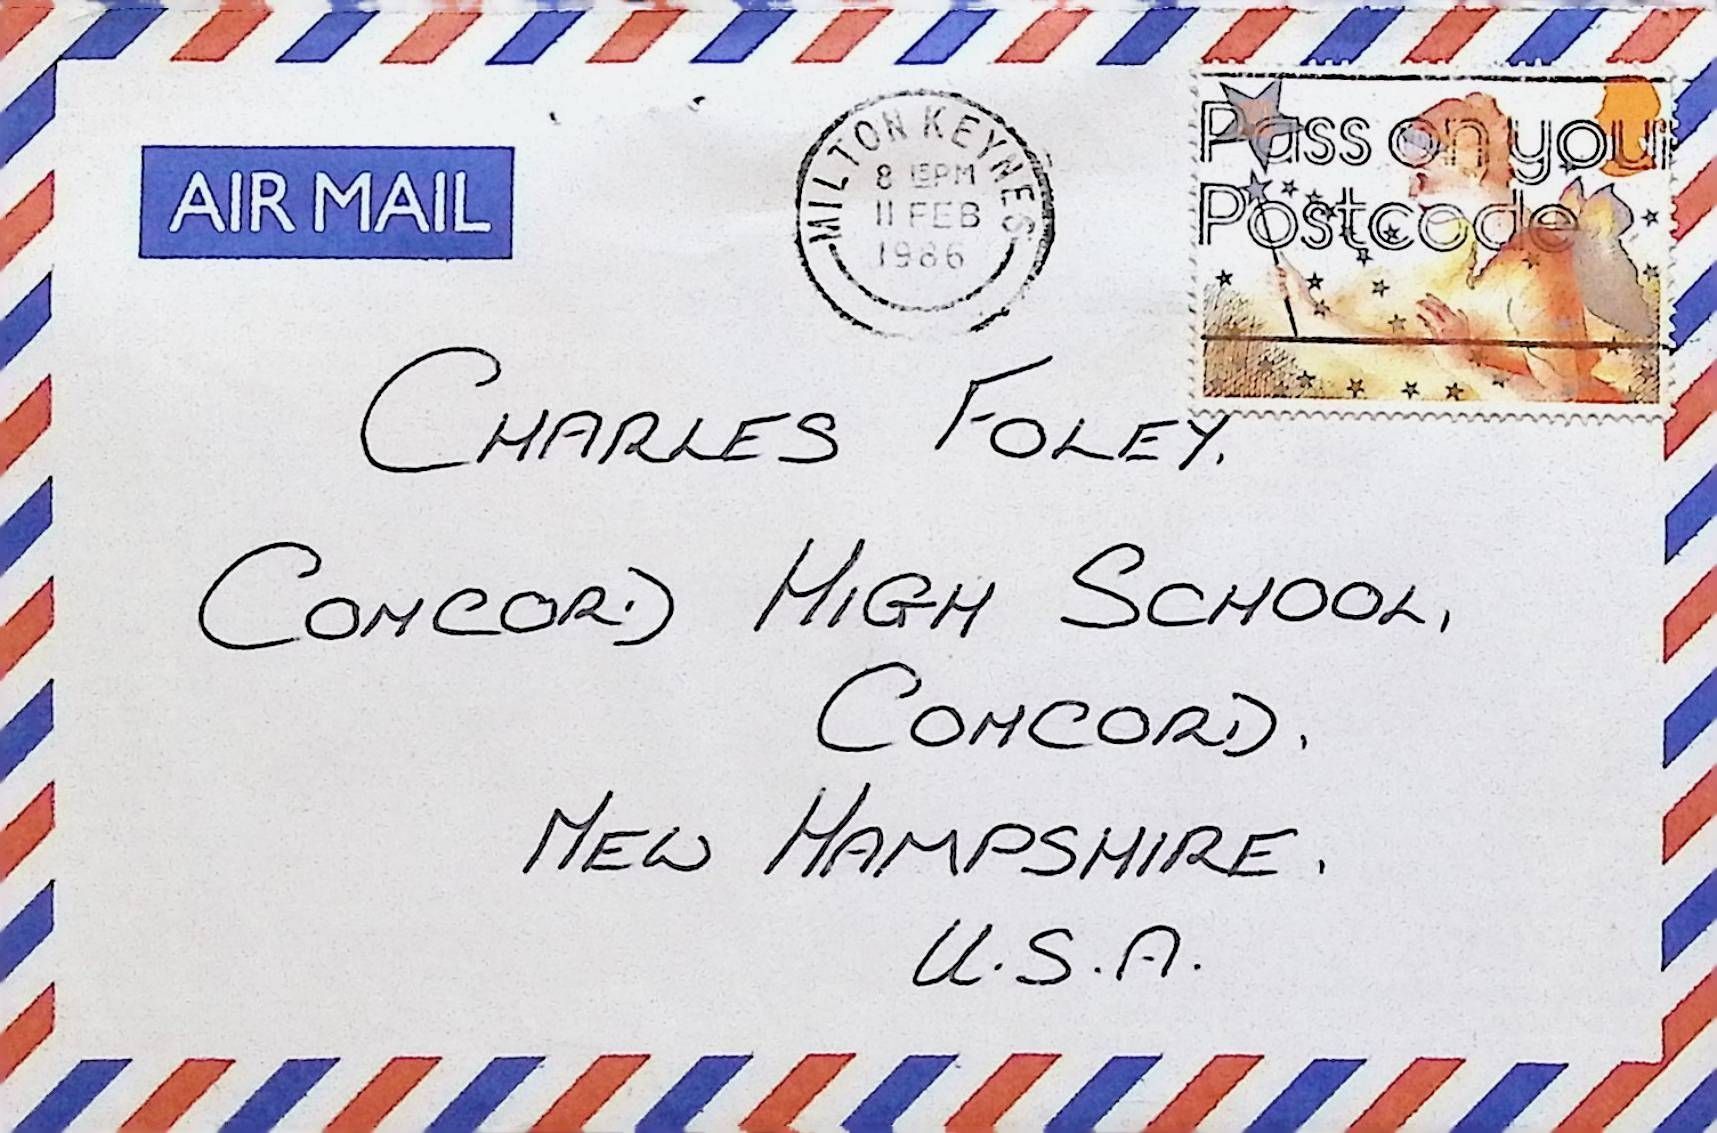 AIR MAIL
MILTON KEYNES
8 15PM
11 FEB
1986
Pass on your
Postcode
CHARLES FOLEY.
CONCORD HIGH SCHOOL,
CONCORD.
NEW HAMPSHIRE.
U.S.A.